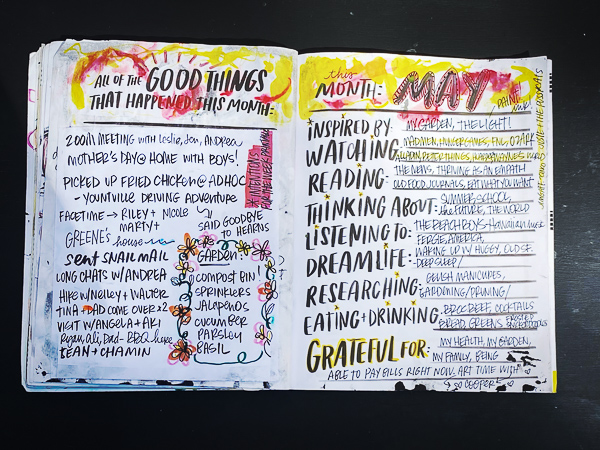 ALL OF THE GOOD THINGS
THAT HAPPENED THIS MONTH:
ZOOM MEETING WITH Leslie, Jen, ANDREA
MOTHER'S DAY @ HOME WITH BOYS!
PICKED UP FRIED CHICKEN @ AD HOC
- YOUNTVILLE DRIVING ADVENTURE
FACETIME → RILEY + Nicole
MARTY +
GREENE'S house
SAID GOODBYE
TO HEARNS
sent SNAIL MAIL
LONG CHATS W/ ANDREA
HIKE W/ RILEY + WALTER
TINA + DAD COME OVER x2
VISIT W/ ANGELA + AKI
Ryan, Ali, Dad - BBQ here
SEAN + CHAMIN
GARDEN:
COMPOST BIN!
SPRINKLERS
JALEPEÑOS
CUCUMBER
PARSLEY
BASIL
this
MONTH: MAY
INSPIRED BY: MY GARDEN, THE LIGHT!
WATCHING: MADMEN, HUNGER GAMES, FNL, OZARK
READING: THE NEWS, THRIVING AS AN EMPATH
OLD FOOD JOURNALS, EAT WHAT YOU WANT
THINKING ABOUT: SUMMER SCHOOL,
the FUTURE, THE WORLD
LISTENING TO: THE BEACH BOYS - Hawaiian music
DREAM LIFE: WAKING UP W/ HUGGY, OLD SF
- DEEP SLEEP!
RESEARCHING: GELISH MANICURES,
GARDENING / PRUNING /
EATING + DRINKING: BROC BEEF, COCKTAILS
BREAD, GREENS
GRATEFUL FOR: MY HEALTH, MY GARDEN,
MY FAMILY, BEING
ABLE TO PAY BILLS RIGHT NOW. ART TIME WITH
SO COOPER